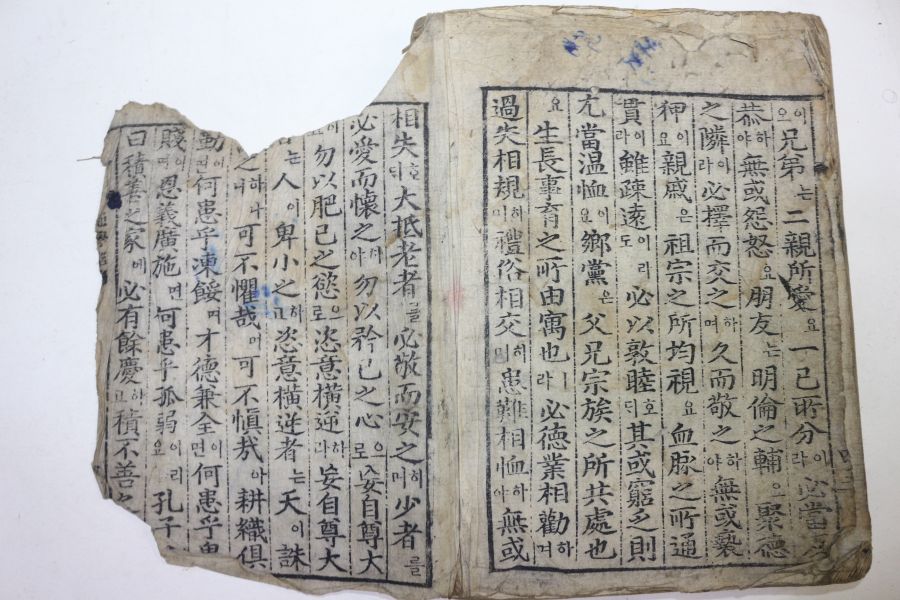 이으兄弟는二親所愛요一己所分이라必當
恭하야無或怨怒요朋友는明倫之輔으聚德
之隣이라必擇而交之하며久而敬之하야無或褻
狎이요親戚은祖宗之所均視요血脉之所通
貫이라雖疎遠이리도必以敦睦호디其或窮乏則
尤當溫恤이요鄕黨은父兄宗族之所共處也
요生長事育之所由寓也ㅣ라必德業相勸하며
過失相規하며禮俗相交하며患難相恤하야無或
相失호디大抵老者를必敬而安之하며少者를
必愛而懷之하야勿以矜己之心으로妄自尊大
勿以肥己之慾으로恣意橫逆하라妄自尊大
는人이卑小之하고恣意橫逆者는天이誅
之하나니可不懼哉며可不愼哉아耕織俱
勤이면何患乎凍餒며才德兼全이면何患乎
賤이며恩義廣施면何患乎孤弱이리요孔子
曰積善之家에必有餘慶하고積不善之